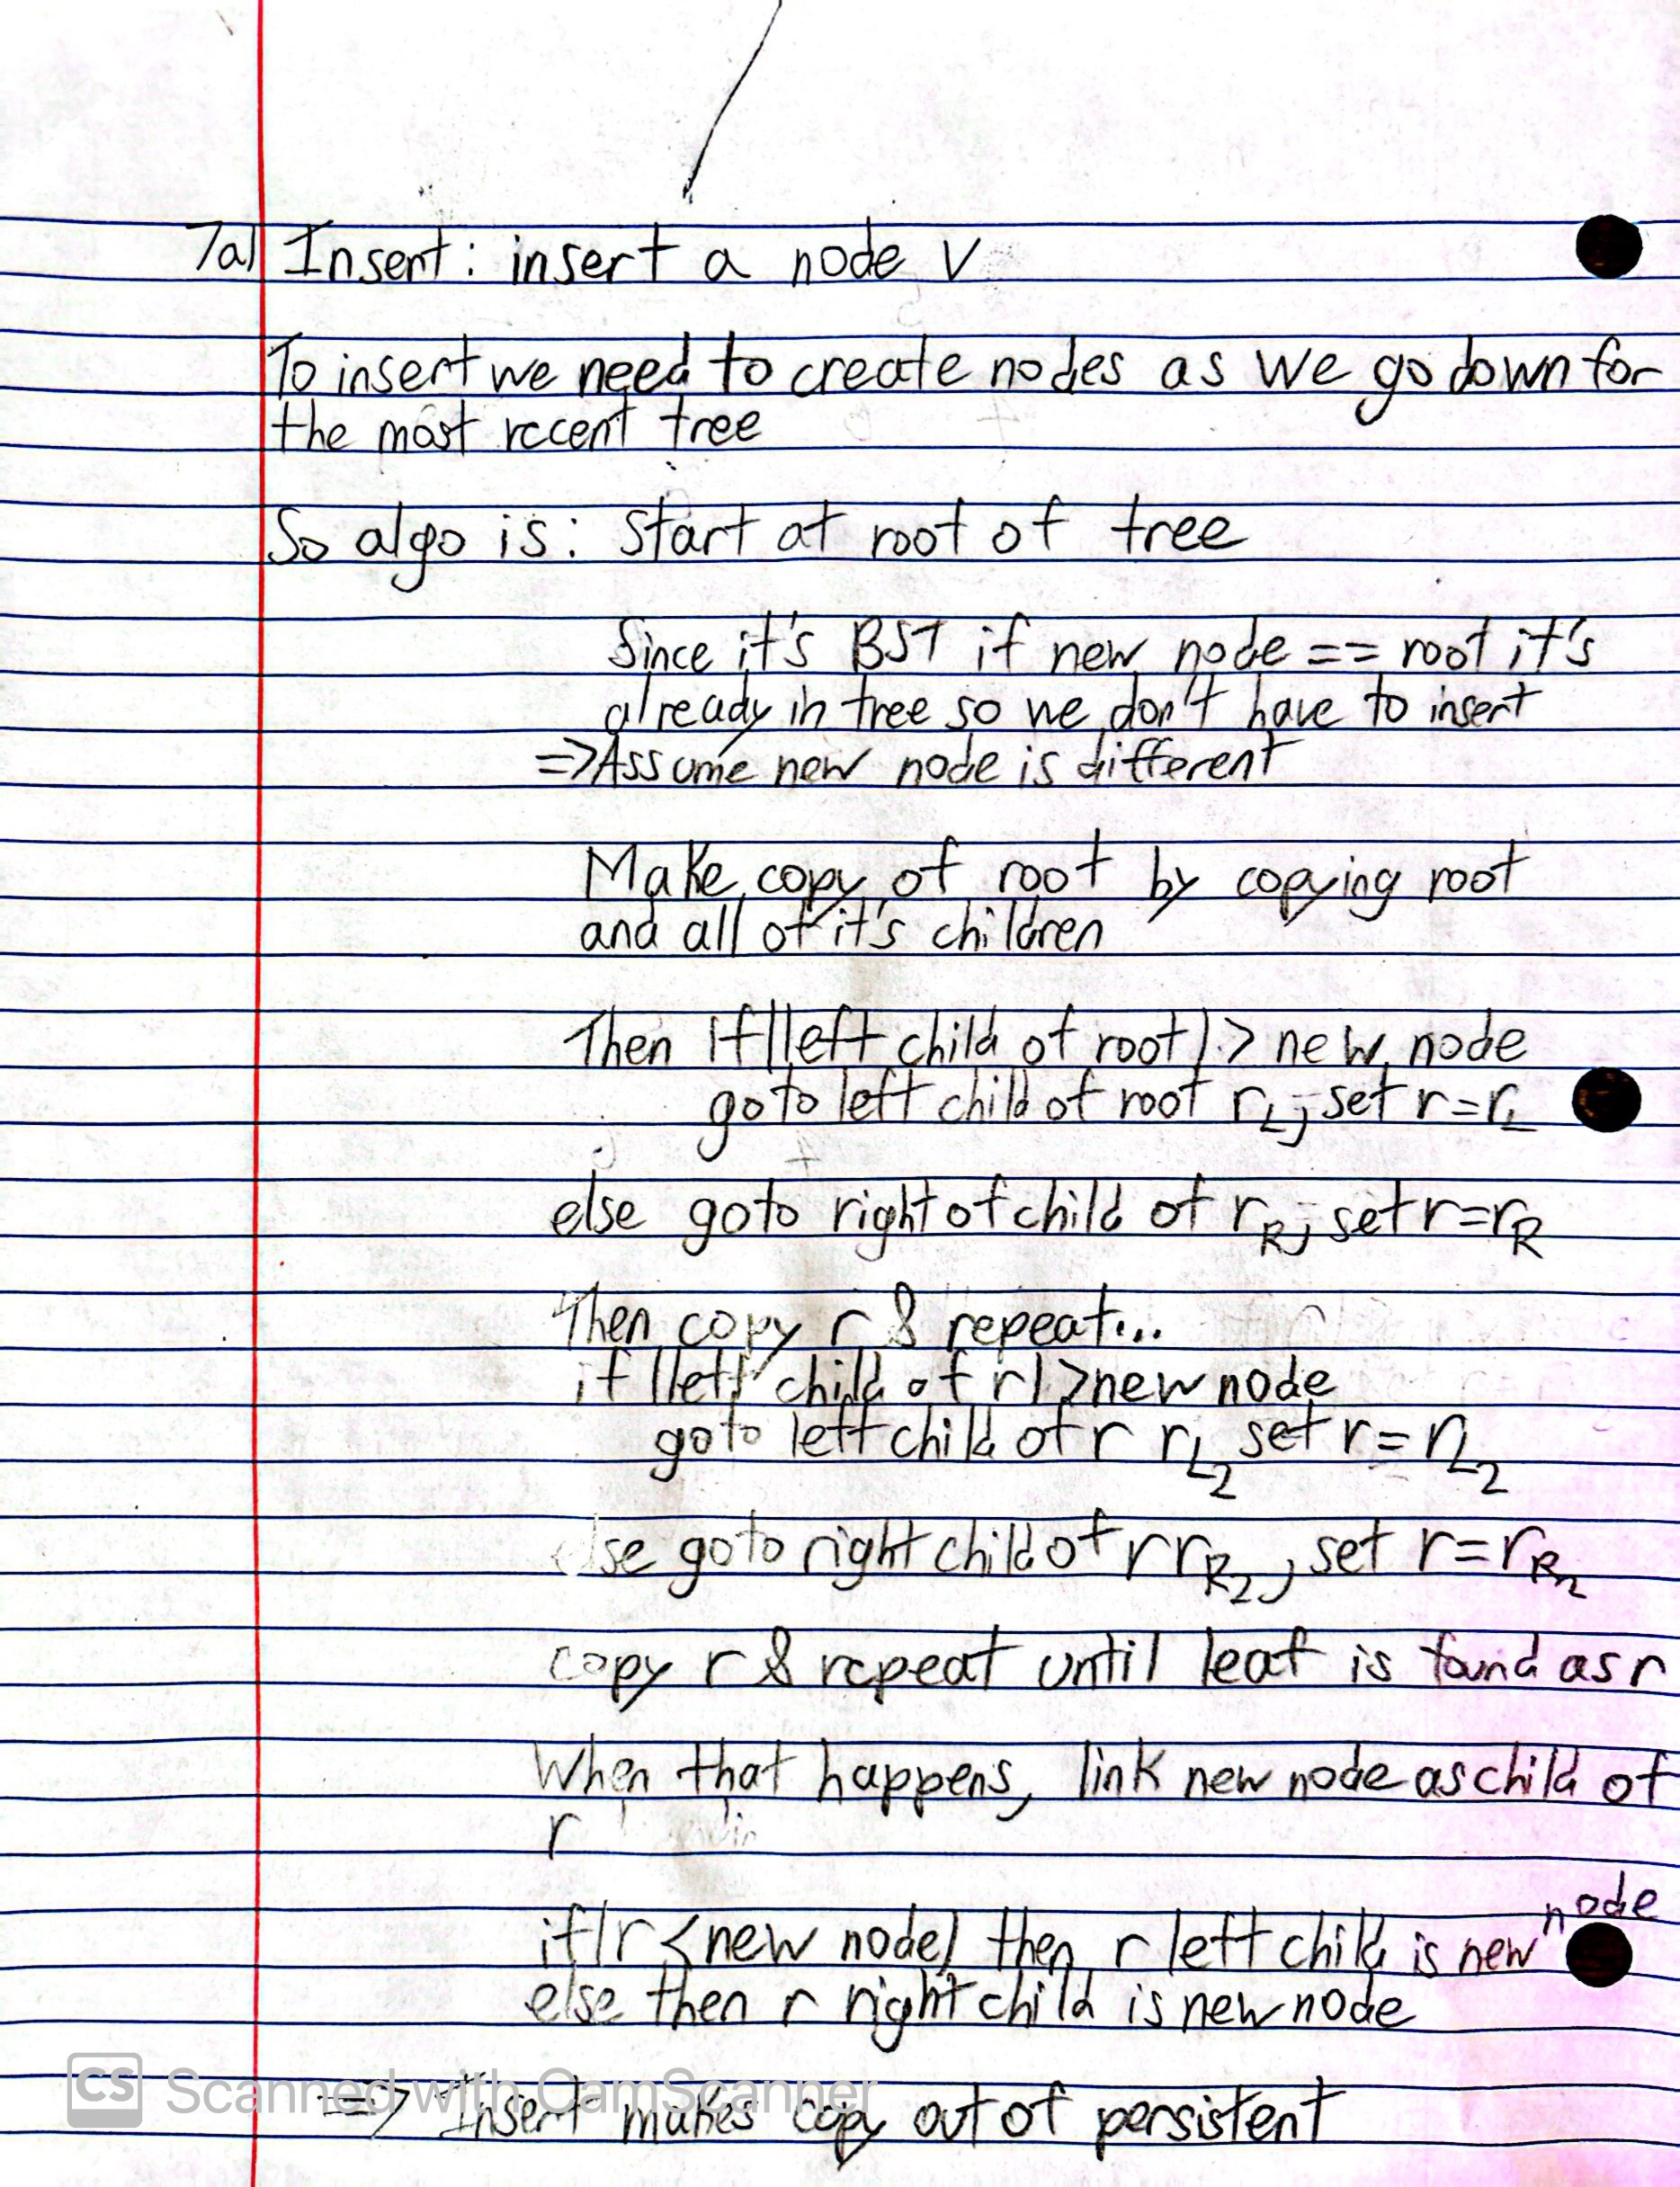 7a) Insert: insert a node v
To insert we need to create nodes as we go down for
the most recent tree
So algo is: Start at root of tree
Since it's BST if new node == root it's
already in tree so we don't have to insert
=> Assume new node is different
Make copy of root by copying root
and all of it's children
Then If |left child of root| > new node
go to left child of root r_L, set r = r_L
else go to right of child of r_R, set r = r_R
Then copy r & repeat...
if |left child of r| > new node
go to left child of r r_L2 set r = r_L2
else go to right child of r r_R2, set r = r_R2
copy r & repeat until leaf is found as r
When that happens, link new node as child of
r
if |r < new node| then r left child is new node
else then r right child is new node
=> Insert makes copy out of persistent
CS Scanned with CamScanner